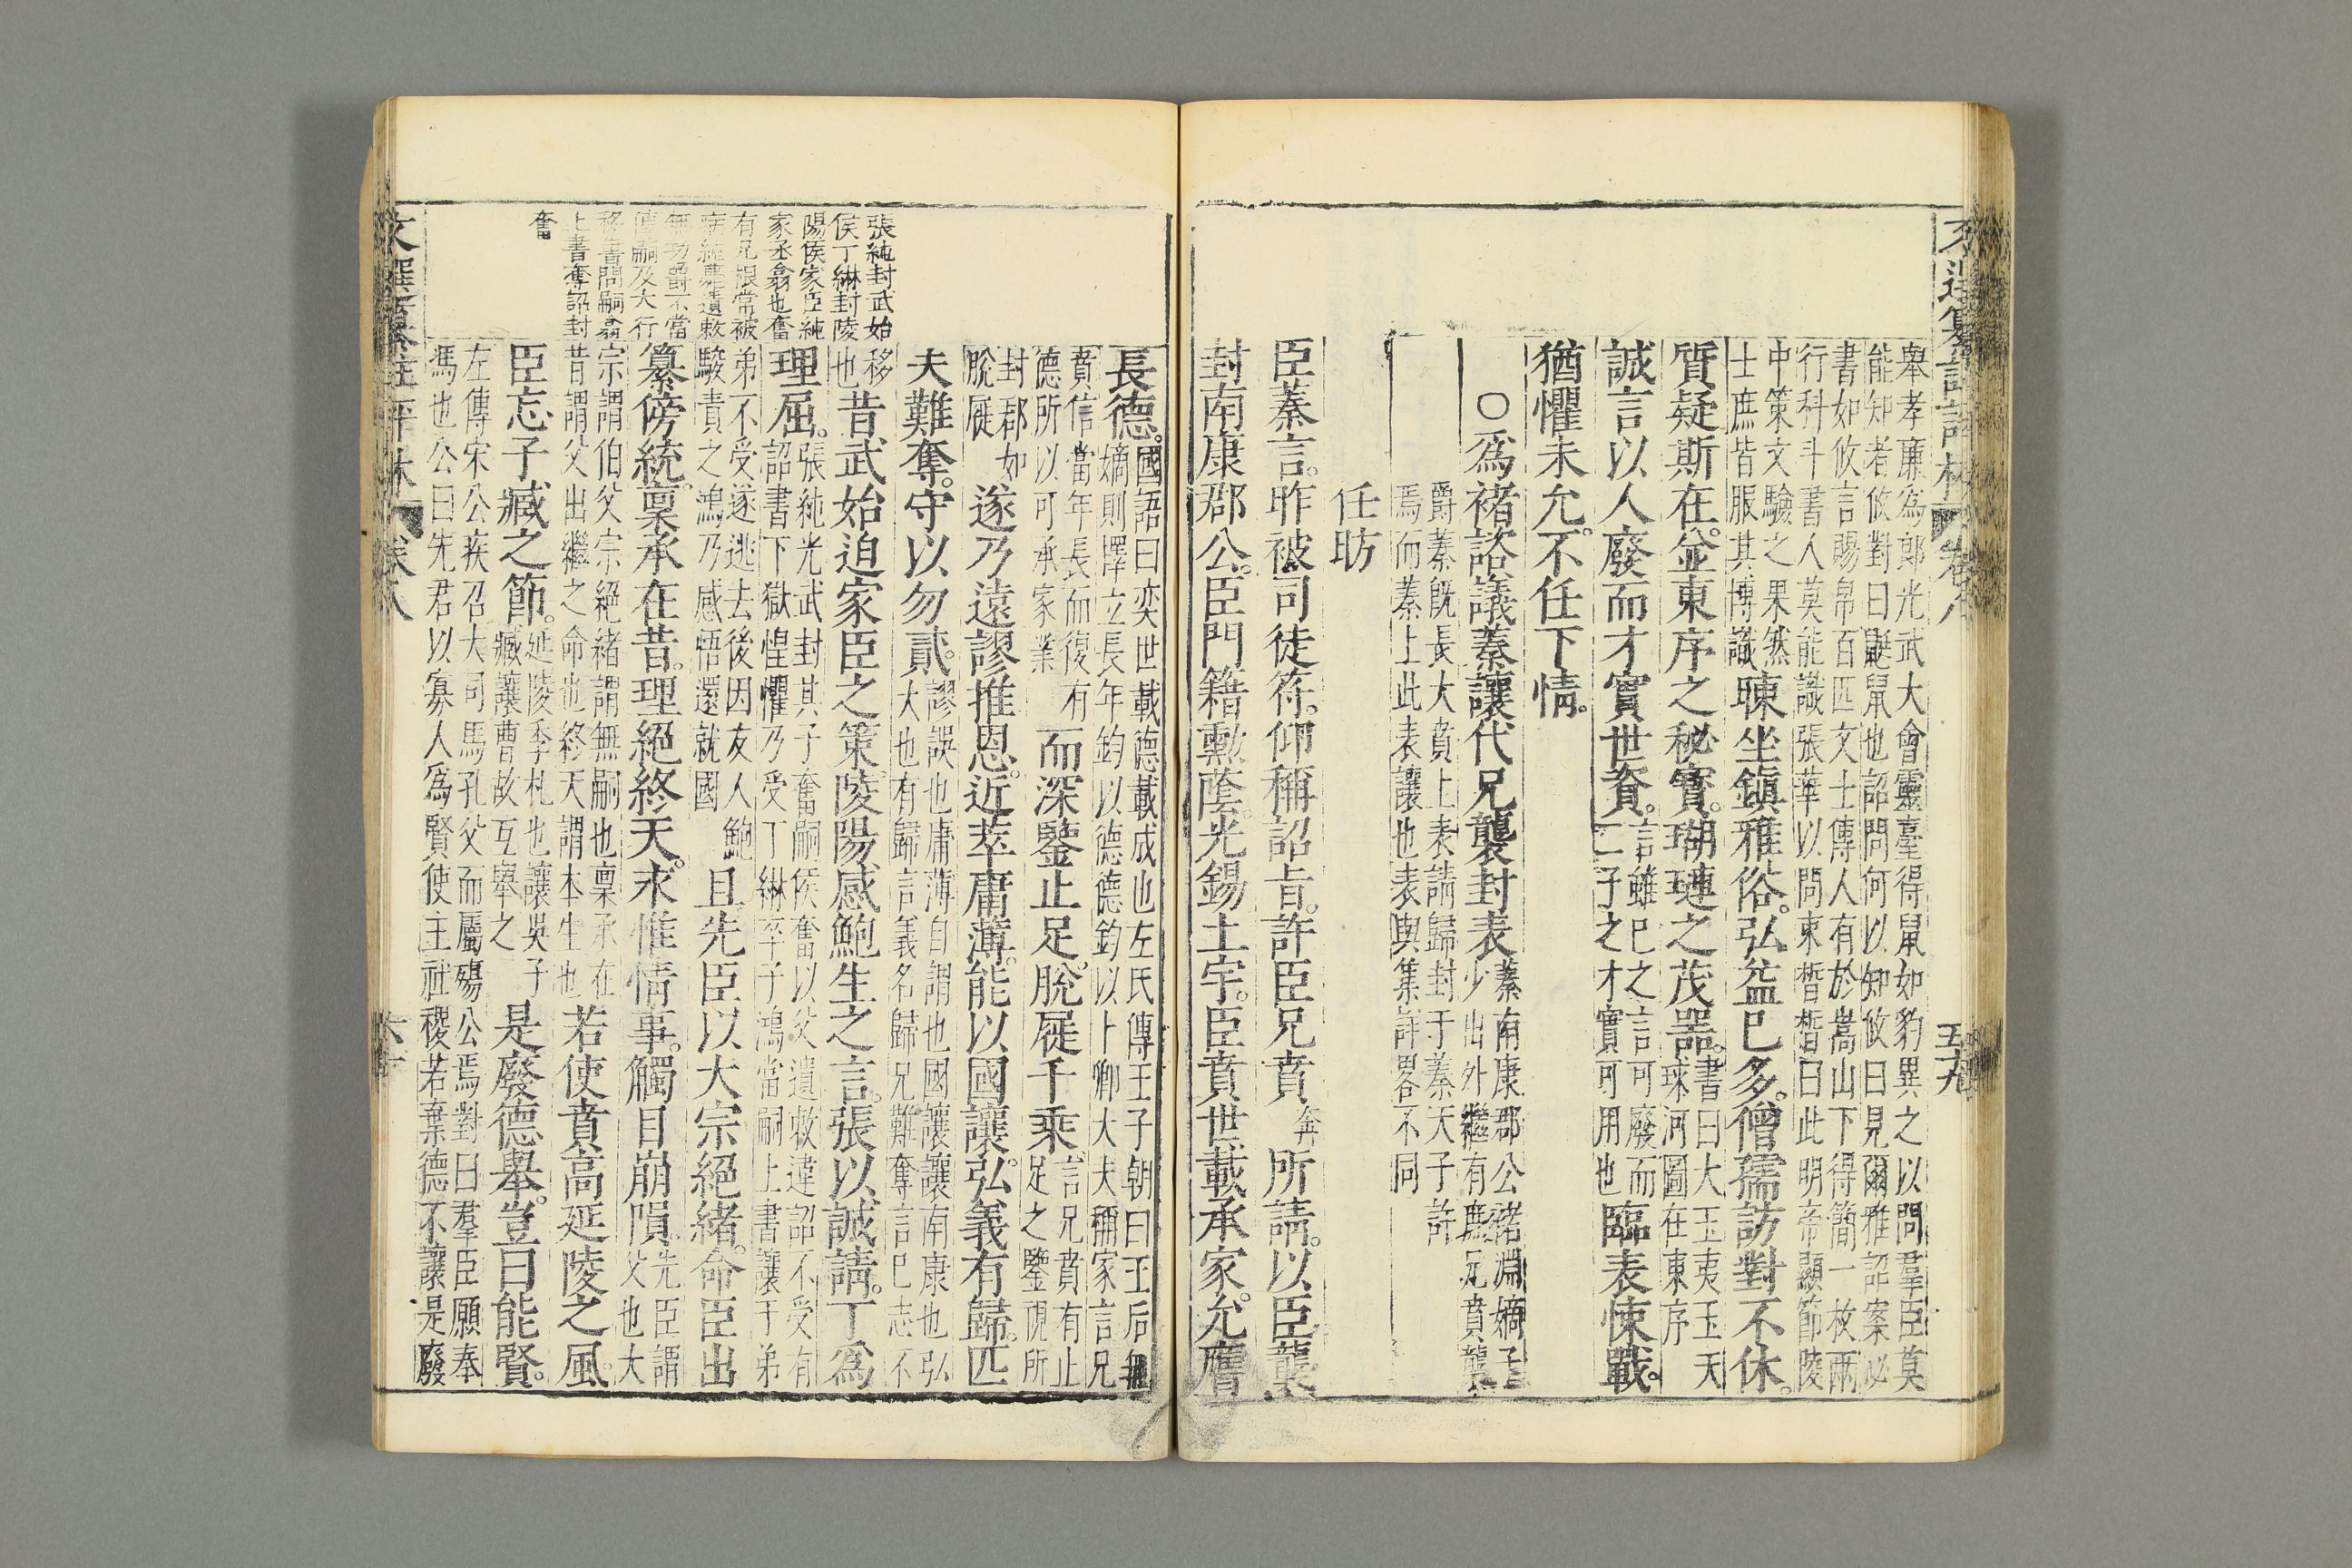 舉孝廉爲郎光武大會靈臺得鼠如豹異之以問羣臣莫
能知者攸對曰鼮鼠也詔問何以知攸曰見爾雅詔案必
書如攸言賜帛百匹文士傳人有於嵩山下得簡一枚兩
行科斗書人莫能識張華以問束晳晳曰此明帝顯節陵
中策文驗之果然
士庶皆服其博識
暕坐鎮雅俗。弘益巳多。僧孺訪對不休。
質疑斯在。並東序之秘寶。瑚璉之茂器。
書曰大玉夷玉天
球河圖在東序
誠言以人廢而才實世資。
言雖巳之言可廢而
二子之才實可用也
臨表悚戰。
猶懼未允。不任下情。
○爲褚諮議蓁讓代兄襲封表
蓁南康郡公褚淵嫡子
少出外繼有庶兄賁襲
爵蓁旣長大賁上表請歸封于蓁天子許
焉而蓁上此表讓也表與集詳畧不同
任昉
臣蓁言。昨被司徒符。仰稱詔旨。許臣兄賁
奔
所請。以臣襲
封南康郡公。臣門籍勳蔭。光錫土宇。臣賁世載承家。允膺
長德。
國語曰奕世載德載成也左氏傳王子朝曰王后無
嫡則擇立長年鈞以德德鈞以卜卿大夫稱家言兄
賁信當年長而復有
德所以可承家業
而深鑒止足。脫屣千乘
言兄賁有止
足之鑒視所
封郡如
脫屣
遂乃遠謬推恩。近萃庸薄。能以國讓。弘義有歸。匹
夫難奪。守以勿貳。
謬誤也庸薄自謂也國讓讓南康也弘
大也有歸言義名歸兄難奪言巳志不
移
也
昔武始迫家臣之策。陵陽感鮑生之言。張以誠請。丁爲
理屈。
張純光武封其子奮嗣侯奮以父遺敕違詔不受有
詔書下獄惶懼乃受丁綝卒子鴻當嗣上書讓于弟
弟不受遂逃去後因友人鮑
駿責之鴻乃感悟還就國
且先臣以大宗絕緒。命臣出
纂傍統。稟承在昔。理絕終天。永惟情事。觸目崩隕。
先臣謂
父也大
宗謂伯父宗絕緒謂無嗣也稟承在
昔謂父出繼之命也終天謂本生也
若使賁高延陵之風。
臣忘子臧之節。
延陵季札也讓吳子
臧讓曹故互舉之
是廢德舉。豈曰能賢。
左傳宋公疾召大司馬孔父而屬殤公焉對曰羣臣願奉
馮也公曰先君以寡人爲賢使主社稷若棄德不讓是廢
張純封武始
侯丁綝封陵
陽侯家臣純
家丞翕也奮
有兄根常被
病純薨遺敕
無功爵不當
傳嗣及大行
移書問嗣翕
上書奪詔封
奮
卷八
五十九